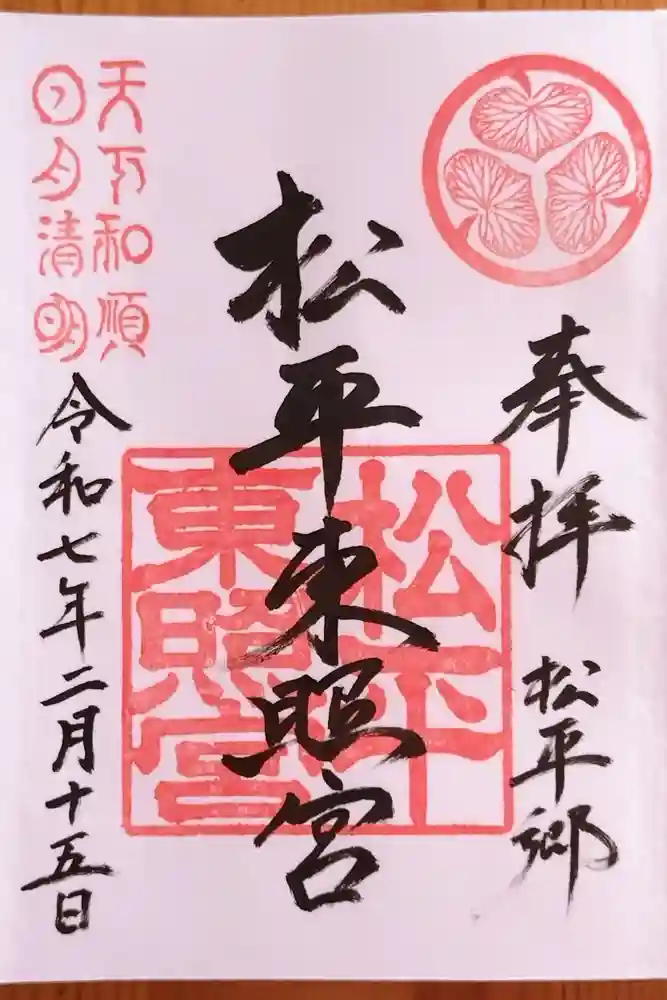 奉拝
松平郷
松平東照宮
松平
東照宮
天下和順
日月清明
令和七年二月十五日